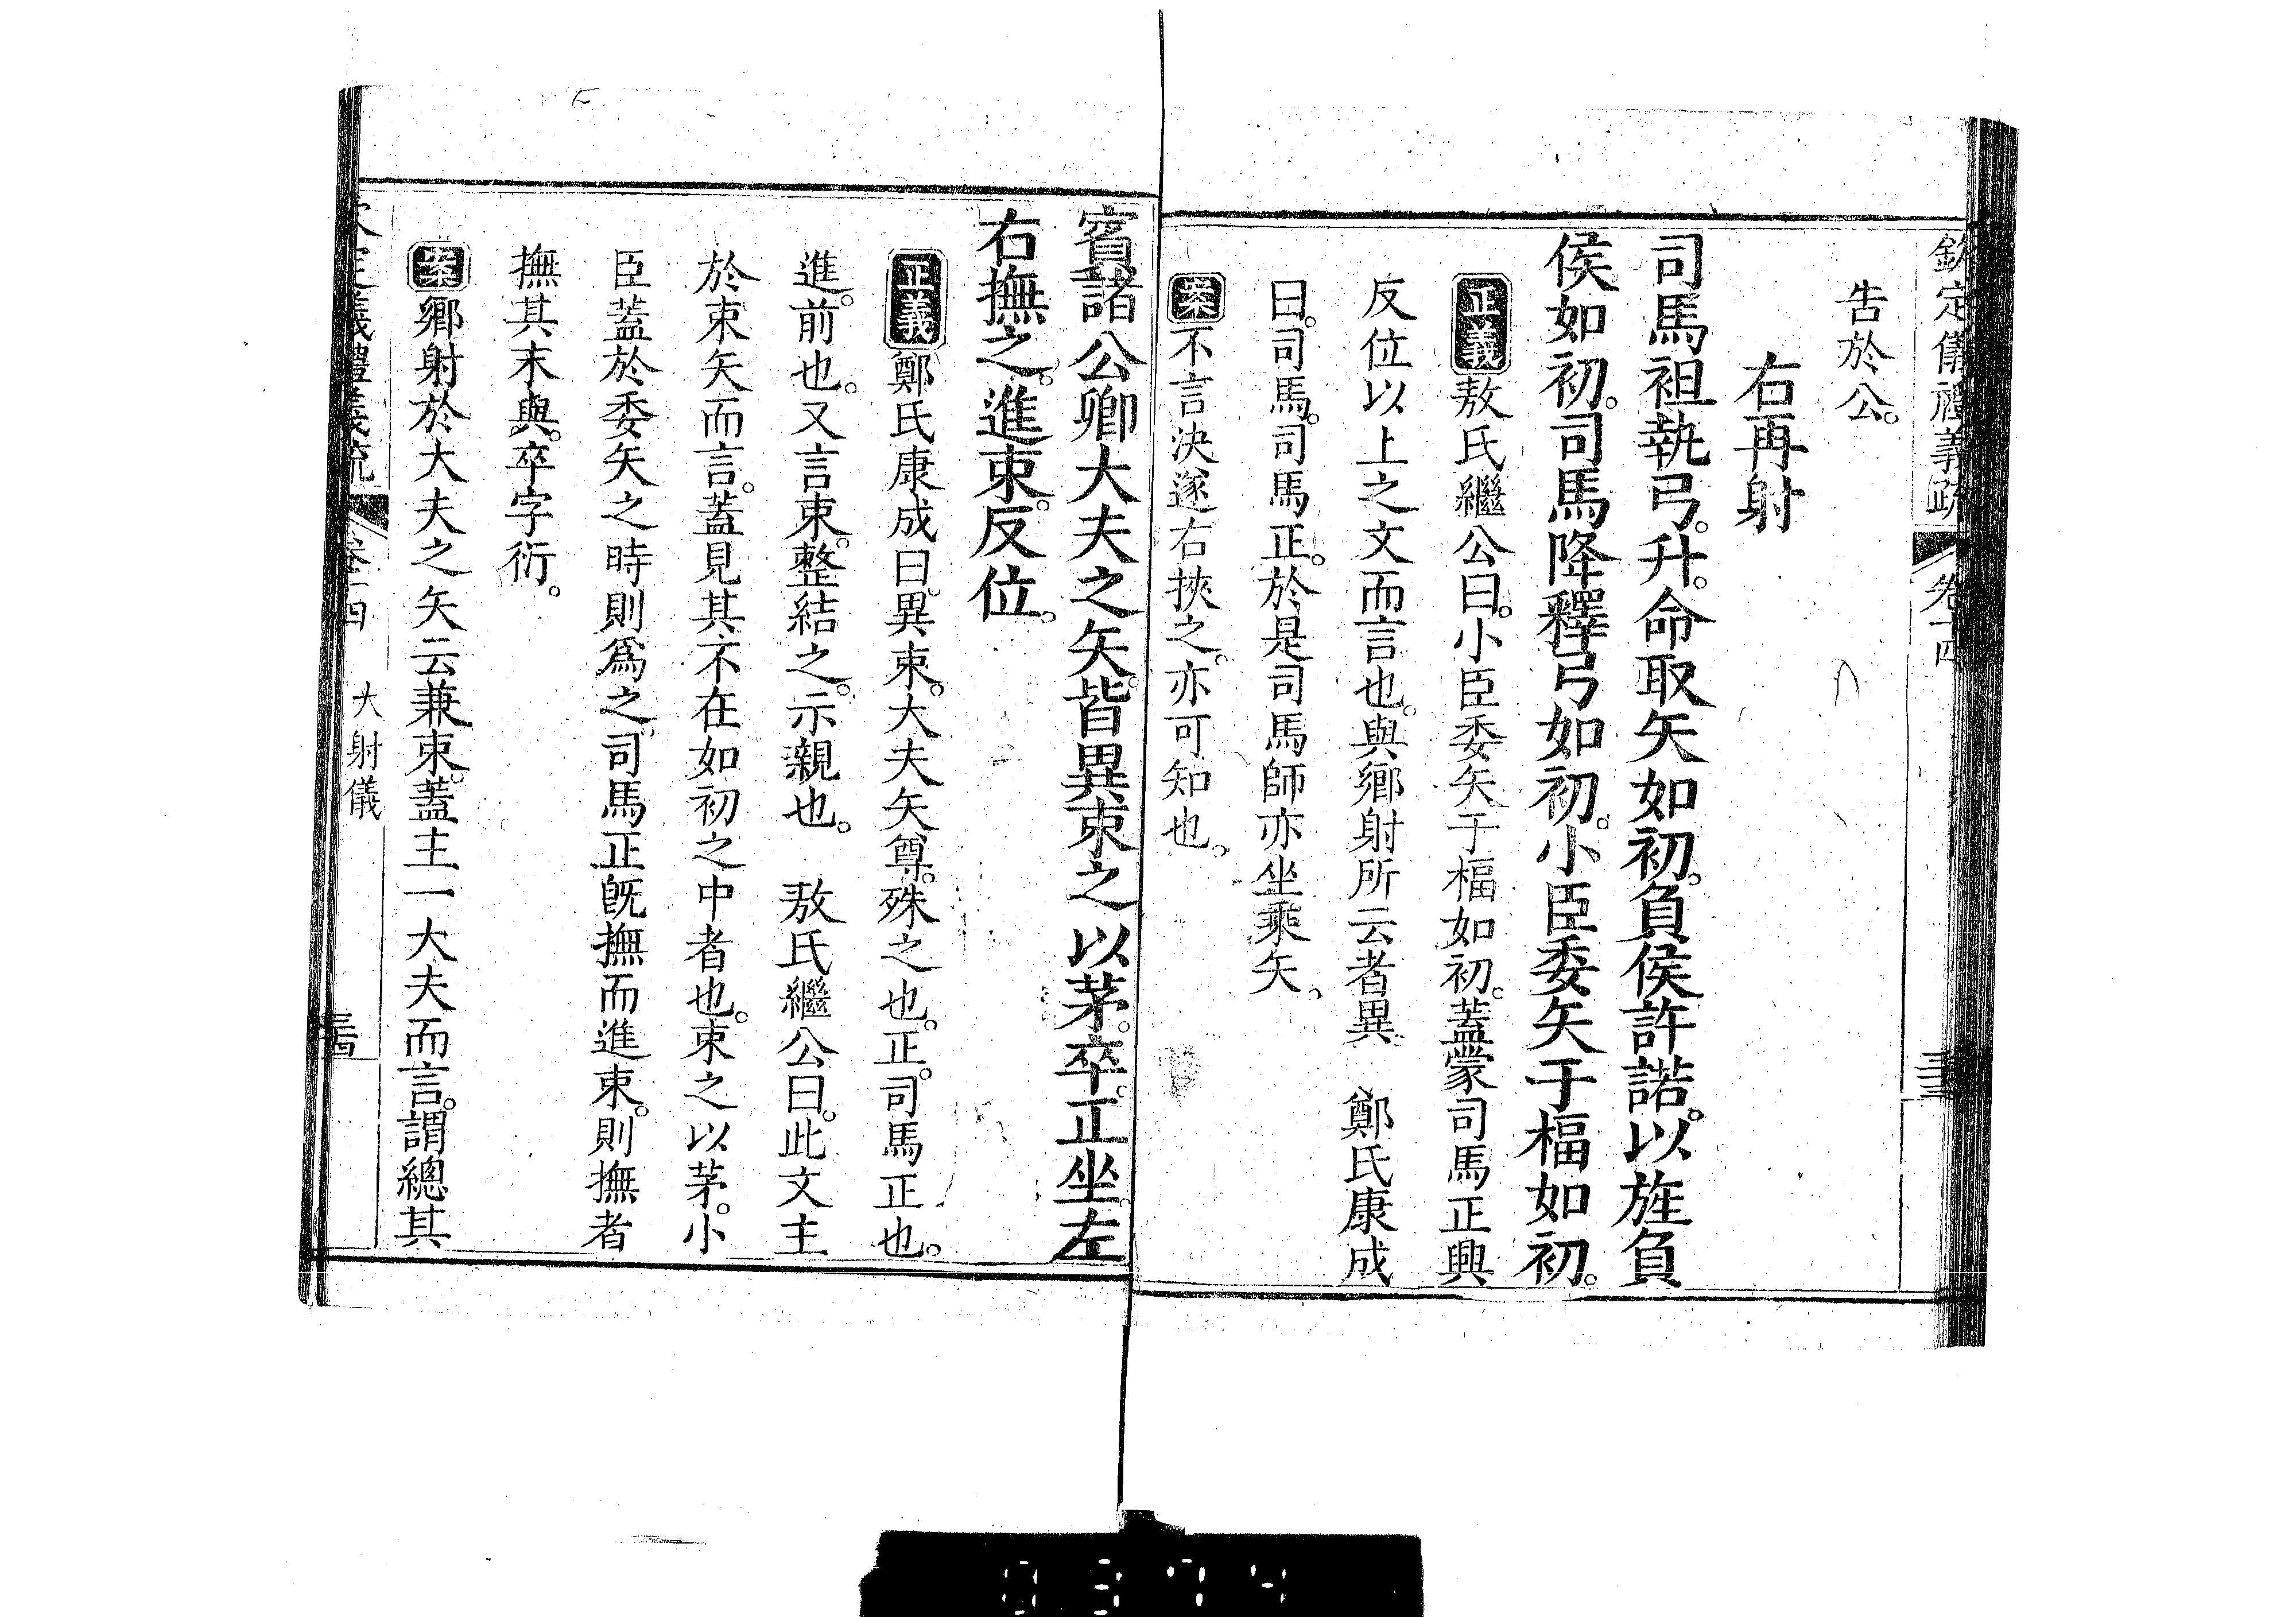 欽定儀禮義疏 卷十四
告於公。
右再射
司馬袒執弓。升。命取矢如初。負侯許諾。以旌負
侯如初。司馬降釋弓如初。小臣委矢于楅如初。
正義敖氏繼公曰。小臣委矢于楅如初。蓋蒙司馬正興
反位以上之文而言也。與鄉射所云者異 鄭氏康成
曰。司馬。司馬正。於是司馬師亦坐乘矢。
案不言決遂右挾之。亦可知也。
賓諸公卿大夫之矢。皆異束之以茅。卒。正坐。左
右撫之。進束。反位。
正義鄭氏康成曰。異束。大夫矢尊。殊之也。正。司馬正也。
進。前也。又言束。整結之。示親也。 敖氏繼公曰。此文主
於束矢而言。蓋見其不在如初之中者也。束之以茅。小
臣蓋於委矢之時則爲之。司馬正旣撫而進束。則撫者
撫其末與。卒字衍。
案鄉射於大夫之矢云兼束。蓋主一大夫而言。謂總其
欽定儀禮義疏 卷十四 大射儀 三十四